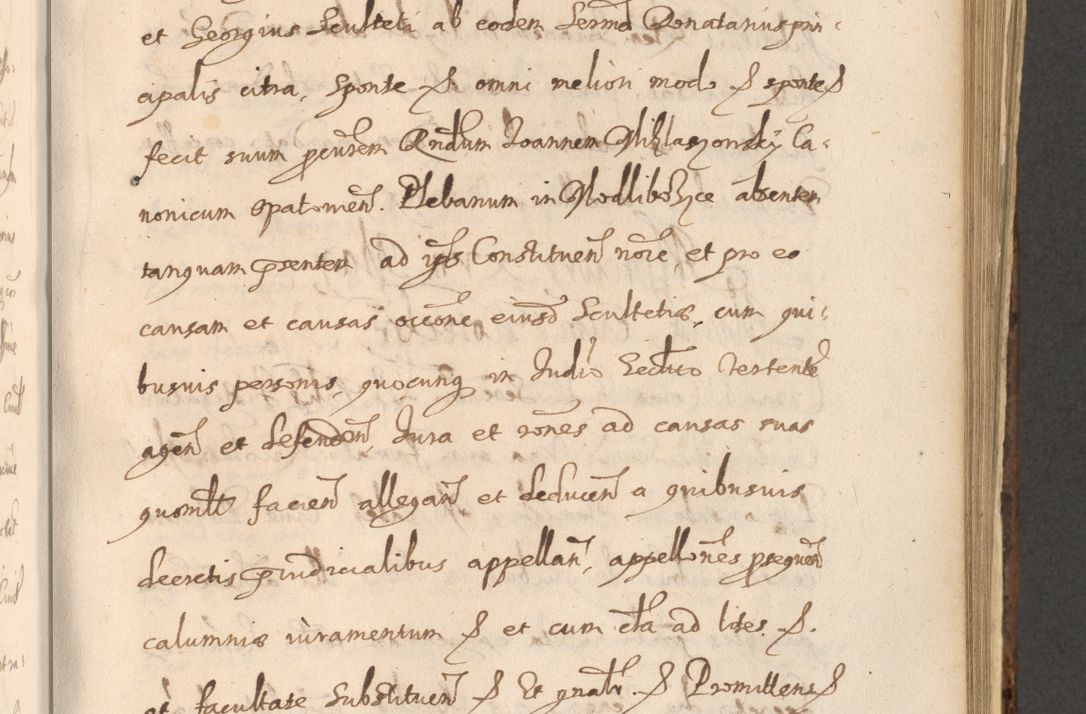 et Georgius Sculteti ab eodem Sermo Donatarius prin-
cipalis citra, sponte etc. omni meliori modo etc. sponte etc.
fecit suum procurem Rndum Joannem Miklaszowsky Ca-
nonicum Opatovien. Plebanum in Modlibożyce absentem
tanquam presentem ad ipsius Constituen nore, et pro eo
causam et causas occone eiusd Scultetis, cum qui-
busvis personis, quocunq in Judio
agen et defenden, Jura et rones ad causas suas
quomlt facien allegan et deducen a quibusvis
decretis preiudicialibus appellan, appellones prosequen
calumnis iuramentum etc. et cum cla ad lites etc.
et facultate substituen etc. Et gnalr etc. Promittens etc.